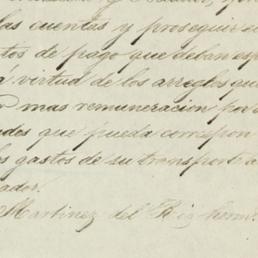 las cuentas y proseguir
tos de pago que deban esp
virtud de los arreglos qu
mas remuneracion por
ades que pueda correspon
los gastos de su transporte a
ador.
Martinez del Rio herm